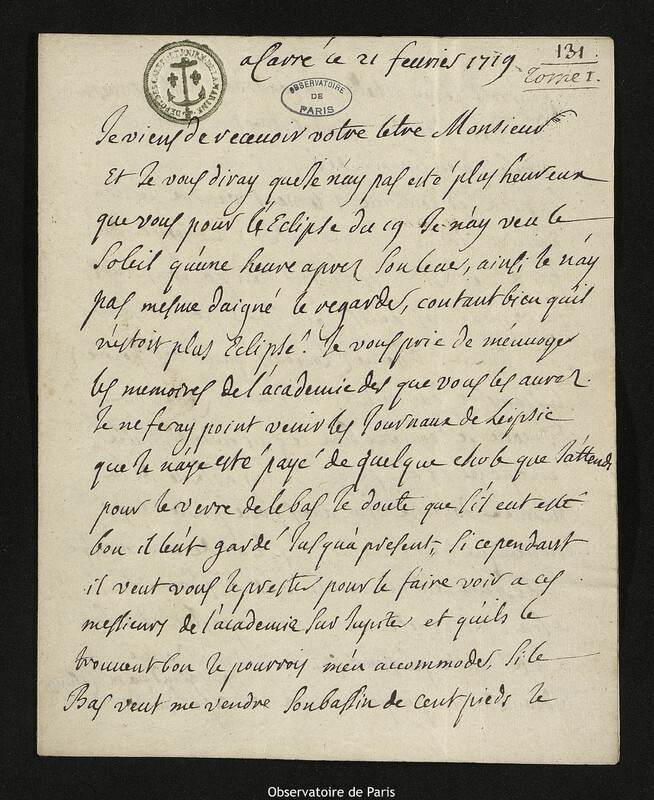 a Carré ce 21 fevrier 1719
131
Tome I.
OBSERVATOIRE
DE
PARIS
Je viens de recevoir votre lettre Monsieur
Et Je vous diray que Je n'ay pas esté plus heureux
que vous pour l'Eclipse du 19 Je n'ay veu le
Soleil qu'une heure aprez son lever, ainsi Je n'ay
pas mesme daigné le regarder, contant bien quil
n'estoit plus Eclipsé. Je vous prie de m'envoyer
les memoires de l'academie dez que vous les aurez.
Je ne feray point venir les Journaux de Leipsic
que Je n'aye esté payé de quelque chose que J'attends
pour le verre de le bas Je doute que s'il eut esté
bon il l'eut gardé Jusqu'a present, si cependant
il veut vous le prester pour le faire voir a ces
messieurs de l'academie sur Jupiter et qu'ils le
trouvent bon Je pourrois m'en accommoder, si le
Bas veut me vendre son bassin de cent pieds Je
Observatoire de Paris